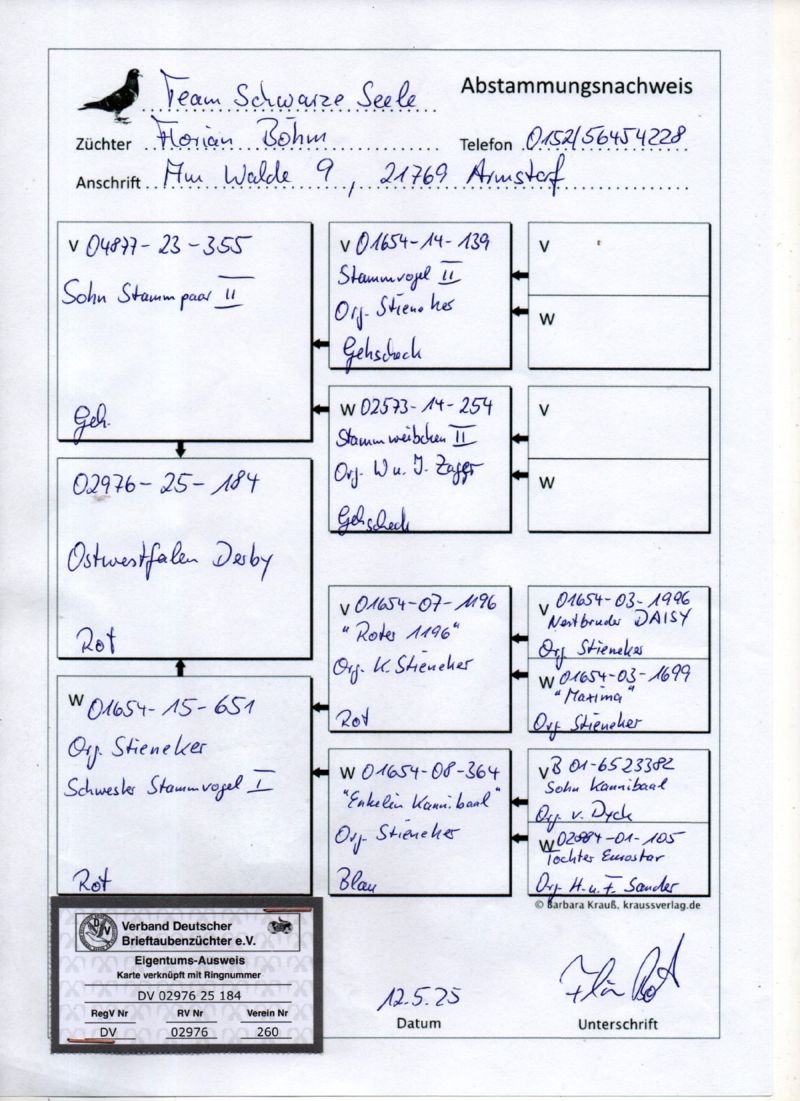 Team Schwarze Seele
Abstammungsnachweis
Züchter Florian Böhm
Telefon 0152/56454228
Anschrift Am Walde 9, 21769 Armstorf
V 04877-23-355
Sohn Stammpaar II
Geh.
V 01654-14-139
Stammvogel II
Org. Stieneker
Gehscheck
V
W
W 02573-14-254
Stammweibchen II
Org. W u. J.
Gehscheck
V
W
02976-25-184
Ostwestfalen Derby
Rot
W 01654-15-651
Org. Stieneker
Schwester Stammvogel I
Rot
V 01654-07-1196
"Roter 1196"
Org. K. Stieneker
Rot
V 01654-03-1996
Nestbruder DAISY
Org Stieneker
W 01654-03-1699
"Maxima"
Org Stieneker
W 01654-08-364
"Enkelin Kannibaal"
Org. Stieneker
Blau
V B 01-6523382
Sohn Kannibaal
Org. v. Dyck
W 02884-01-105
Tochter Eurostar
Org H. u. F. Sander
© Barbara Krauß, kraussverlag.de
DV
Verband Deutscher
Brieftaubenzüchter e.V.
Eigentums-Ausweis
Karte verknüpft mit Ringnummer
DV 02976 25 184
RegV Nr RV Nr Verein Nr
DV 02976 260
12.5.25
Datum
Unterschrift